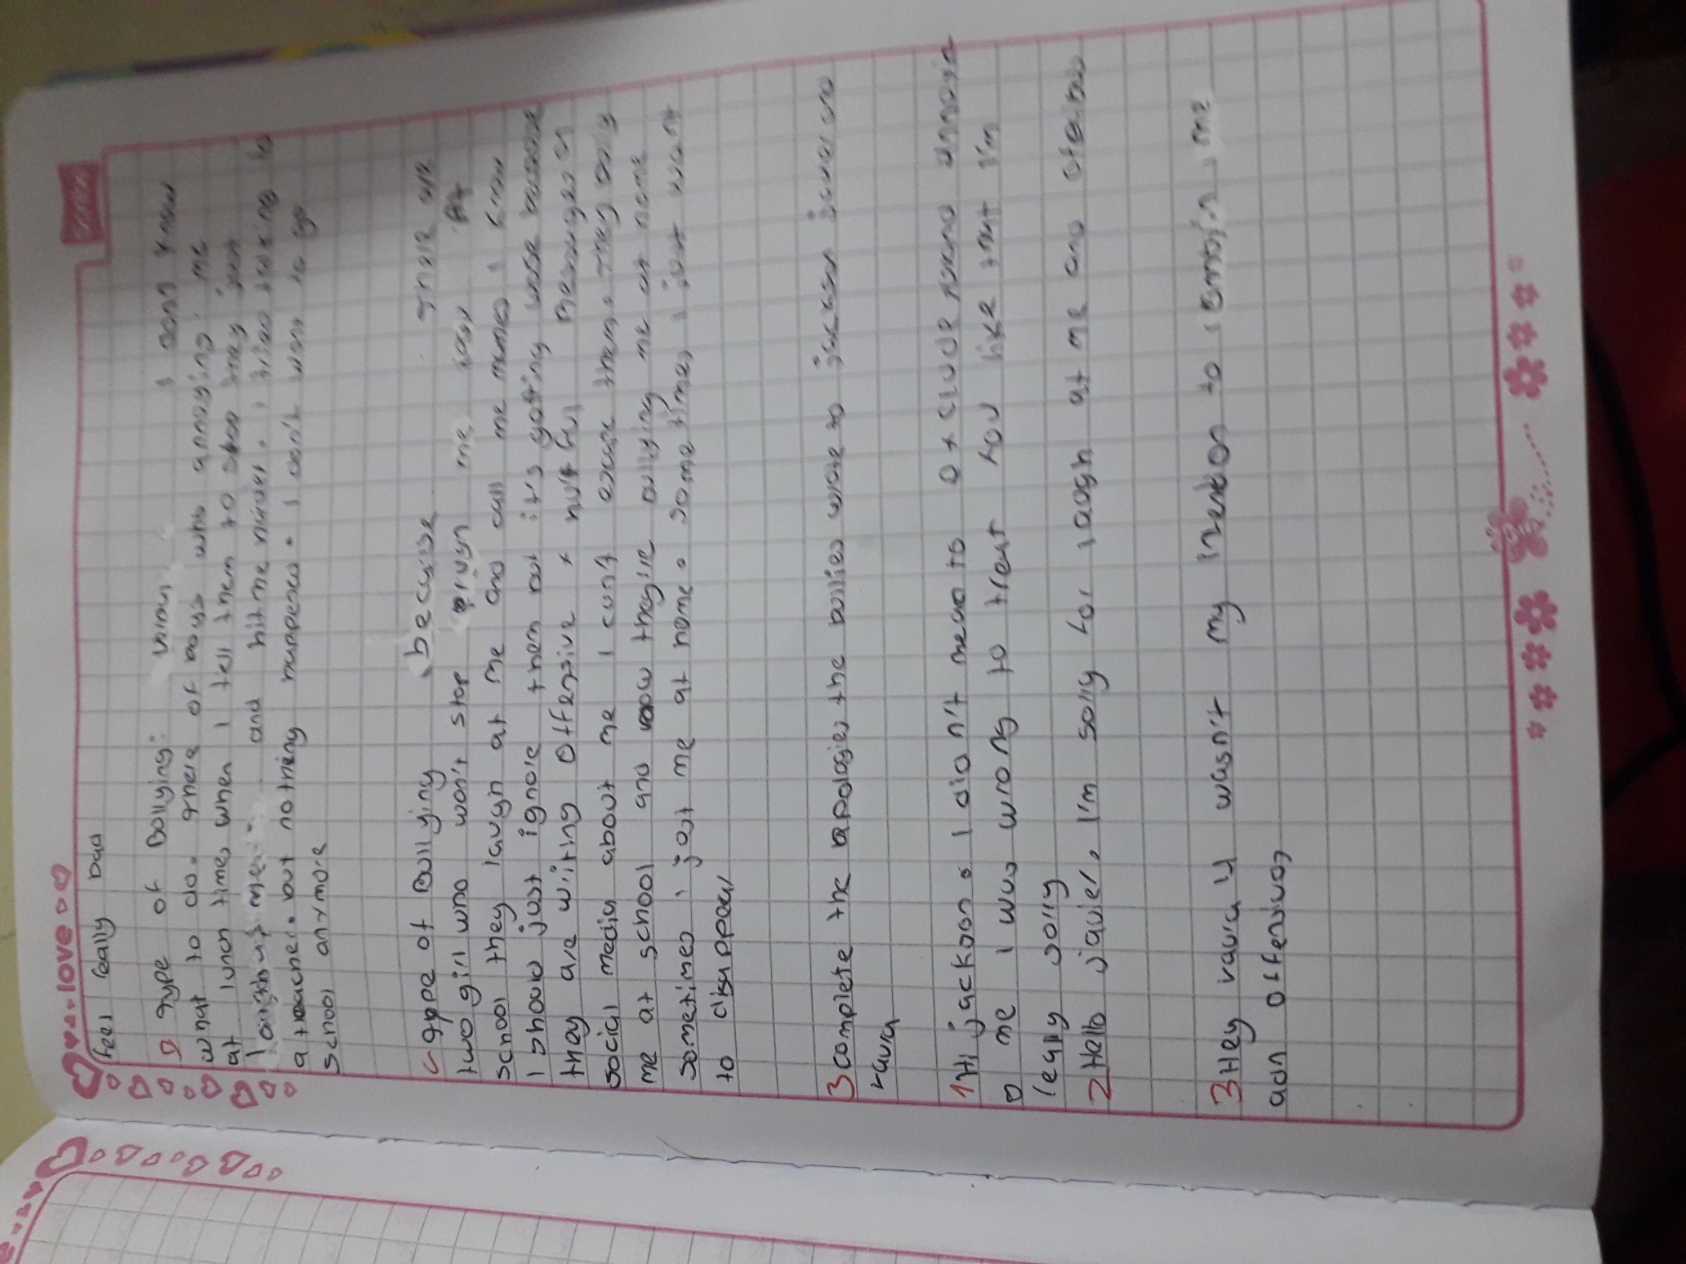 love
feel really bad
D type of Bollying: I don't know
what to do. there of boys who annoying me
at lunch times when I tell them to stop they just
and hit me
a teacher. but nothing happened. I don't want to go
school anymore
C type of Bullying because there are
two girl who won't stop me At
school they laugh at me and call me I know
I should just ignore them but it's getting worse because
they are writing offensive x hurtful Messages on
social media about me I can't them. They only
me at school and now they're bullying me at home
sometimes i just me at home. sometimes i just want
to disappear
3 Complete the apologies the bullies wrote to jackson javier and
laura
1 Hi jackson. I didn't mean to exclude
me I was wrong to treat you like that I'm
really sorry
2 Hello javier, I'm sorry for laogh at me and
3 Hey laura it wasn't my intention to me